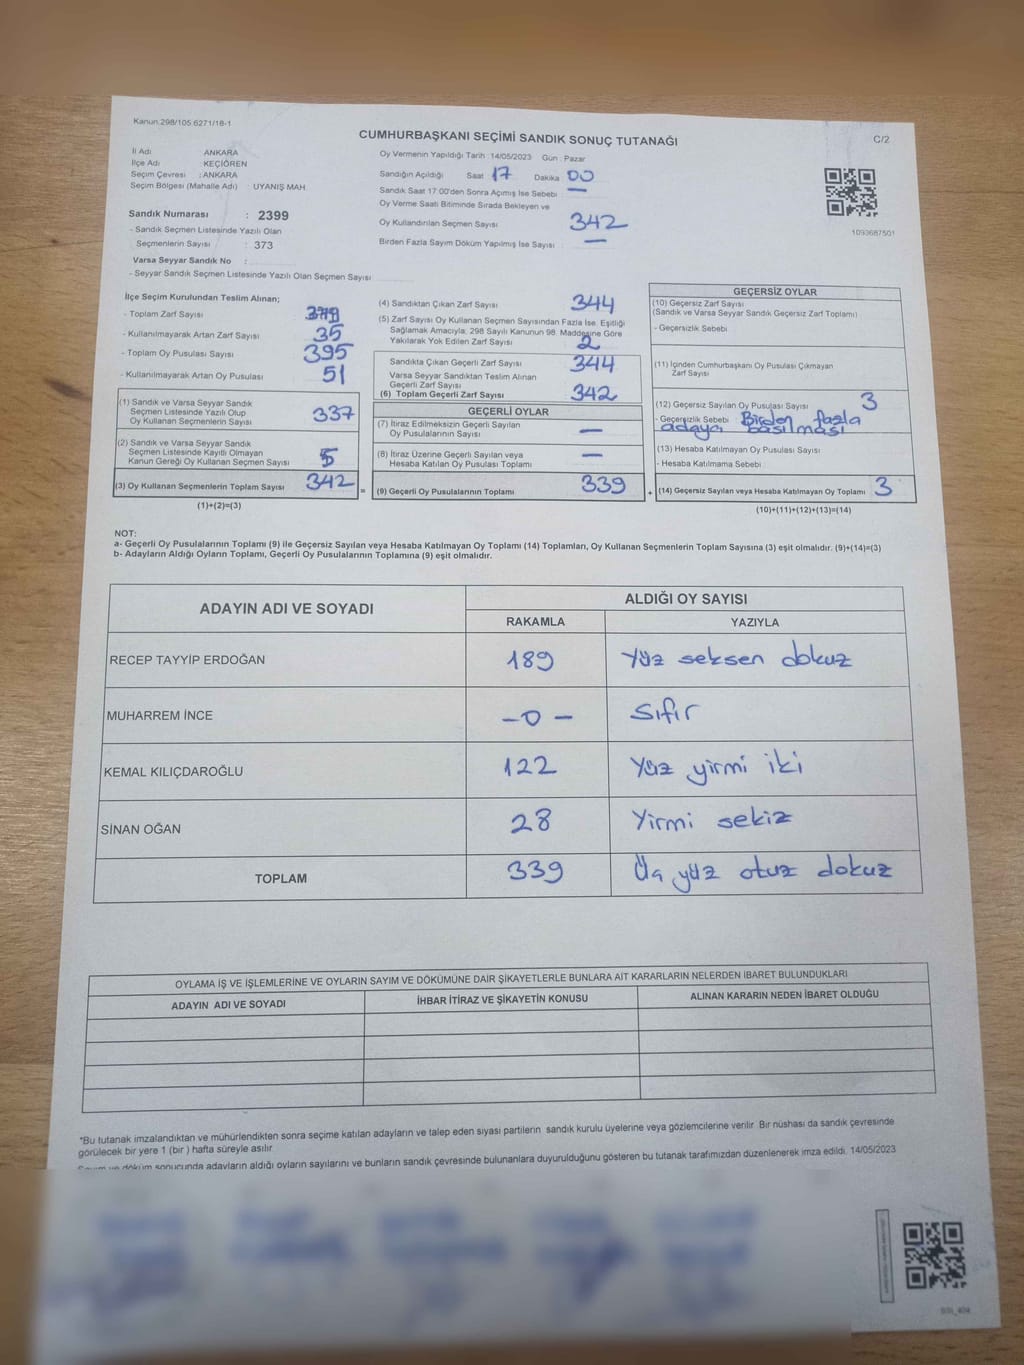 Kanun.298/105 6271/18-1
CUMHURBAŞKANI SEÇİMİ SANDIK SONUÇ TUTANAĞI
C/2
İl Adı ANKARA
İlçe Adı KEÇİÖREN
Seçim Çevresi : ANKARA
Seçim Bölgesi (Mahalle Adı) : UYANIŞ MAH.
Sandık Numarası : 2399
- Sandık Seçmen Listesinde Yazılı Olan
Seçmenlerin Sayısı : 373
Varsa Seyyar Sandık No :
- Seyyar Sandık Seçmen Listesinde Yazılı Olan Seçmen Sayısı
Oy Vermenin Yapıldığı Tarih : 14/05/2023 Gün : Pazar
Sandığın Açıldığı Saat 17 Dakika 00
Sandık Saat 17:00'den Sonra Açımış İse Sebebi —
Oy Verme Saati Bitiminde Sırada Bekleyen ve
Oy Kullandırılan Seçmen Sayısı 342
Birden Fazla Sayım Döküm Yapılmış İse Sayısı —
1093687501
İlçe Seçim Kurulundan Teslim Alınan;
- Toplam Zarf Sayısı
- Kullanılmayarak Artan Zarf Sayısı 35
- Toplam Oy Pusulası Sayısı 395
- Kullanılmayarak Artan Oy Pusulası 51
(1) Sandık ve Varsa Seyyar Sandık
Seçmen Listesinde Yazılı Olup
Oy Kullanan Seçmenlerin Sayısı 337
(2) Sandık ve Varsa Seyyar Sandık
Seçmen Listesinde Kayıtlı Olmayan
Kanun Gereği Oy Kullanan Seçmen Sayısı 5
(3) Oy Kullanan Seçmenlerin Toplam Sayısı 342
(1)+(2)=(3)
(4) Sandıktan Çıkan Zarf Sayısı 344
(5) Zarf Sayısı Oy Kullanan Seçmen Sayısından Fazla İse, Eşitliği
Sağlamak Amacıyla, 298 Sayılı Kanunun 98. Maddesine Göre
Yakılarak Yok Edilen Zarf Sayısı 2
Sandıkta Çıkan Geçerli Zarf Sayısı 344
Varsa Seyyar Sandıktan Teslim Alınan
Geçerli Zarf Sayısı
(6) Toplam Geçerli Zarf Sayısı 342
GEÇERLİ OYLAR
(7) İtiraz Edilmeksizin Geçerli Sayılan
Oy Pusulalarının Sayısı —
(8) İtiraz Üzerine Geçerli Sayılan veya
Hesaba Katılan Oy Pusulası Toplamı —
= (9) Geçerli Oy Pusulalarının Toplamı 339
GEÇERSİZ OYLAR
(10) Geçersiz Zarf Sayısı
(Sandık ve Varsa Seyyar Sandık Geçersiz Zarf Toplamı)
- Geçersizlik Sebebi
(11) İçinden Cumhurbaşkanı Oy Pusulası Çıkmayan
Zarf Sayısı
(12) Geçersiz Sayılan Oy Pusulası Sayısı 3
- Geçersizlik Sebebi : Birden fazla
adaya basılması
(13) Hesaba Katılmayan Oy Pusulası Sayısı
- Hesaba Katılmama Sebebi
+ (14) Geçersiz Sayılan veya Hesaba Katılmayan Oy Toplamı 3
(10)+(11)+(12)+(13)=(14)
NOT:
a- Geçerli Oy Pusulalarının Toplamı (9) ile Geçersiz Sayılan veya Hesaba Katılmayan Oy Toplamı (14) Toplamları, Oy Kullanan Seçmenlerin Toplam Sayısına (3) eşit olmalıdır. (9)+(14)=(3)
b- Adayların Aldığı Oyların Toplamı, Geçerli Oy Pusulalarının Toplamına (9) eşit olmalıdır.
ADAYIN ADI VE SOYADI ALDIĞI OY SAYISI
RAKAMLA YAZIYLA
RECEP TAYYİP ERDOĞAN 189 Yüz seksen dokuz
MUHARREM İNCE -0- Sıfır
KEMAL KILIÇDAROĞLU 122 Yüz yirmi iki
SİNAN OĞAN 28 Yirmi sekiz
TOPLAM 339 Üç yüz otuz dokuz
OYLAMA İŞ VE İŞLEMLERİNE VE OYLARIN SAYIM VE DÖKÜMÜNE DAİR ŞİKAYETLERLE BUNLARA AİT KARARLARIN NELERDEN İBARET BULUNDUKLARI
ADAYIN ADI VE SOYADI İHBAR İTİRAZ VE ŞİKAYETİN KONUSU ALINAN KARARIN NEDEN İBARET OLDUĞU
*Bu tutanak imzalandıktan ve mühürlendikten sonra seçime katılan adayların ve talep eden siyasi partilerin sandık kurulu üyelerine veya gözlemcilerine verilir. Bir nüshası da sandık çevresinde
görülecek bir yere 1 (bir ) hafta süreyle asılır.
Sayım ve döküm sonucunda adayların aldığı oyların sayılarını ve bunların sandık çevresinde bulunanlara duyurulduğunu gösteren bu tutanak tarafımızdan düzenlenerek imza edildi. 14/05/2023